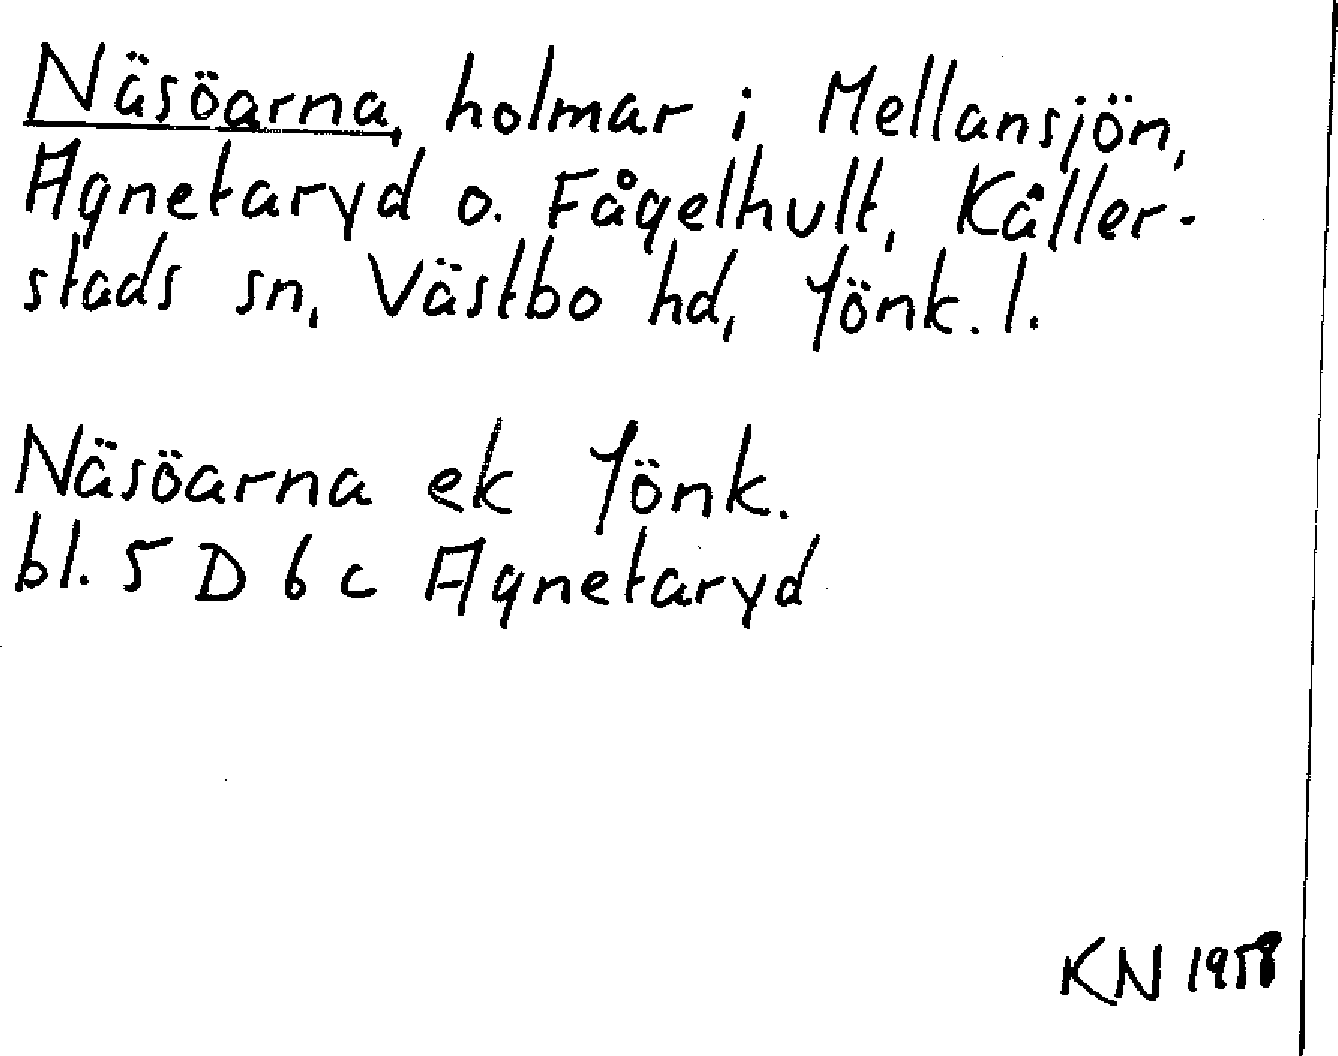 Näsöarna, holmar i Mellansjön,
Agnetaryd o. Fågelhult, Kåller-
stads sn, Västbo hd, Jönk. l.
Näsöarna ek Jönk.
bl. 5 D 6 c Agnetaryd
KN 1958